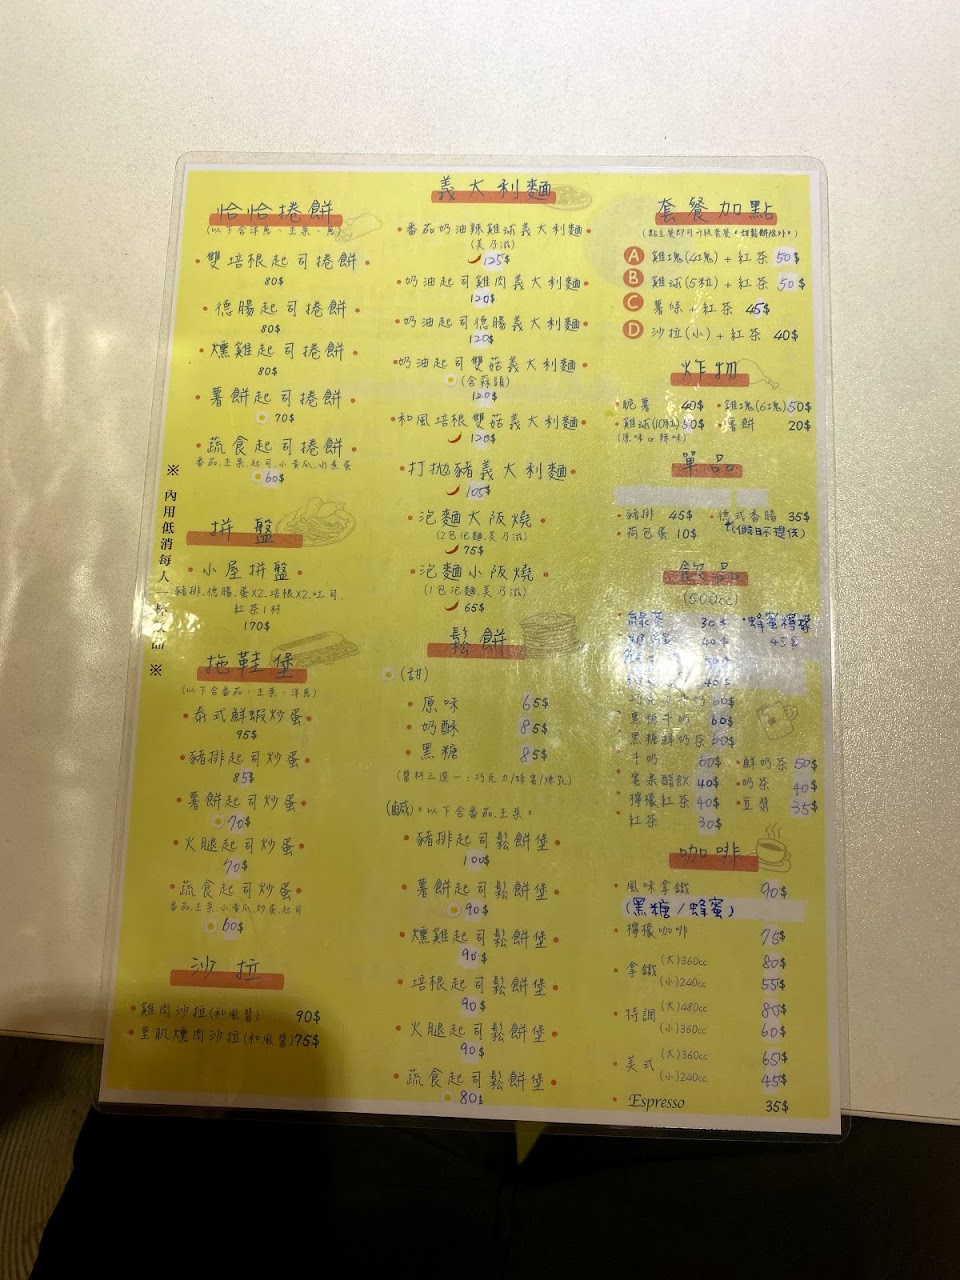 恰恰捲餅
(以下含洋蔥、生菜、蔥)
雙培根起司捲餅
80$
德腸起司捲餅
80$
燻雞起司捲餅
80$
薯餅起司捲餅
70$
蔬食起司捲餅
番茄.生菜.起司.小黃瓜.水煮蛋
60$
拼盤
小屋拼盤
豬排.德腸.蛋X2.培根X2.吐司.
紅茶1杯
170$
拖鞋堡
(以下含番茄、生菜、洋蔥)
泰式鮮蝦炒蛋
95$
豬排起司炒蛋
85$
薯餅起司炒蛋
70$
火腿起司炒蛋
70$
蔬食起司炒蛋
番茄.生菜.小黃瓜.炒蛋.起司
60$
沙拉
雞肉沙拉(和風醬) 90$
里肌燻肉沙拉(和風醬) 75$
※ 內用低消每人一杯飲品 ※
義大利麵
番茄奶油辣雞球義大利麵
(美乃滋)
125$
奶油起司雞肉義大利麵
120$
奶油起司德腸義大利麵
120$
奶油起司雙菇義大利麵
(含蒜頭)
120$
和風培根雙菇義大利麵
120$
打拋豬義大利麵
105$
泡麵大阪燒
(2包泡麵.美乃滋)
75$
泡麵小阪燒
(1包泡麵.美乃滋)
65$
鬆餅
(甜)
原味 65$
奶酥 85$
黑糖 85$
(醬料三選一:巧克力/蜂蜜/煉乳)
(鹹)。以下含番茄.生菜。
豬排起司鬆餅堡
100$
薯餅起司鬆餅堡
90$
燻雞起司鬆餅堡
90$
培根起司鬆餅堡
90$
火腿起司鬆餅堡
90$
蔬食起司鬆餅堡
80$
套餐加點
(點主餐即可升級套餐。甜鬆餅除外。)
A 雞塊(4塊)+紅茶 50$
B 雞球(5粒)+紅茶 50$
C 薯條+紅茶 45$
D 沙拉(小)+紅茶 40$
炸物
脆薯 40$ 雞塊(6塊) 50$
雞球(10粒) 50$ 薯餅 20$
(原味or辣味)
單品
豬排 45$ 德式香腸 35$
荷包蛋 10$ (假日不提供)
飲品
(600cc)
綠茶 30$ 蜂蜜檸檬
40$ 45$
50$
40$
巧克力牛奶 60$
黑糖牛奶 60$
黑糖鮮奶茶 60$
牛奶 60$ 鮮奶茶 50$
蜜果醋飲 40$ 奶茶 40$
檸檬紅茶 40$ 豆漿 35$
紅茶 30$
咖啡
風味拿鐵 90$
(黑糖/蜂蜜)
檸檬咖啡 75$
拿鐵 (大)360cc 80$
(小)240cc 55$
特調 (大)480cc 80$
(小)360cc 60$
美式 (大)360cc 65$
(小)240cc 45$
Espresso 35$